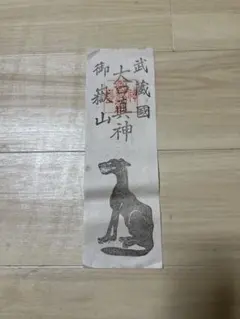 武蔵國
大口真神
御嶽山